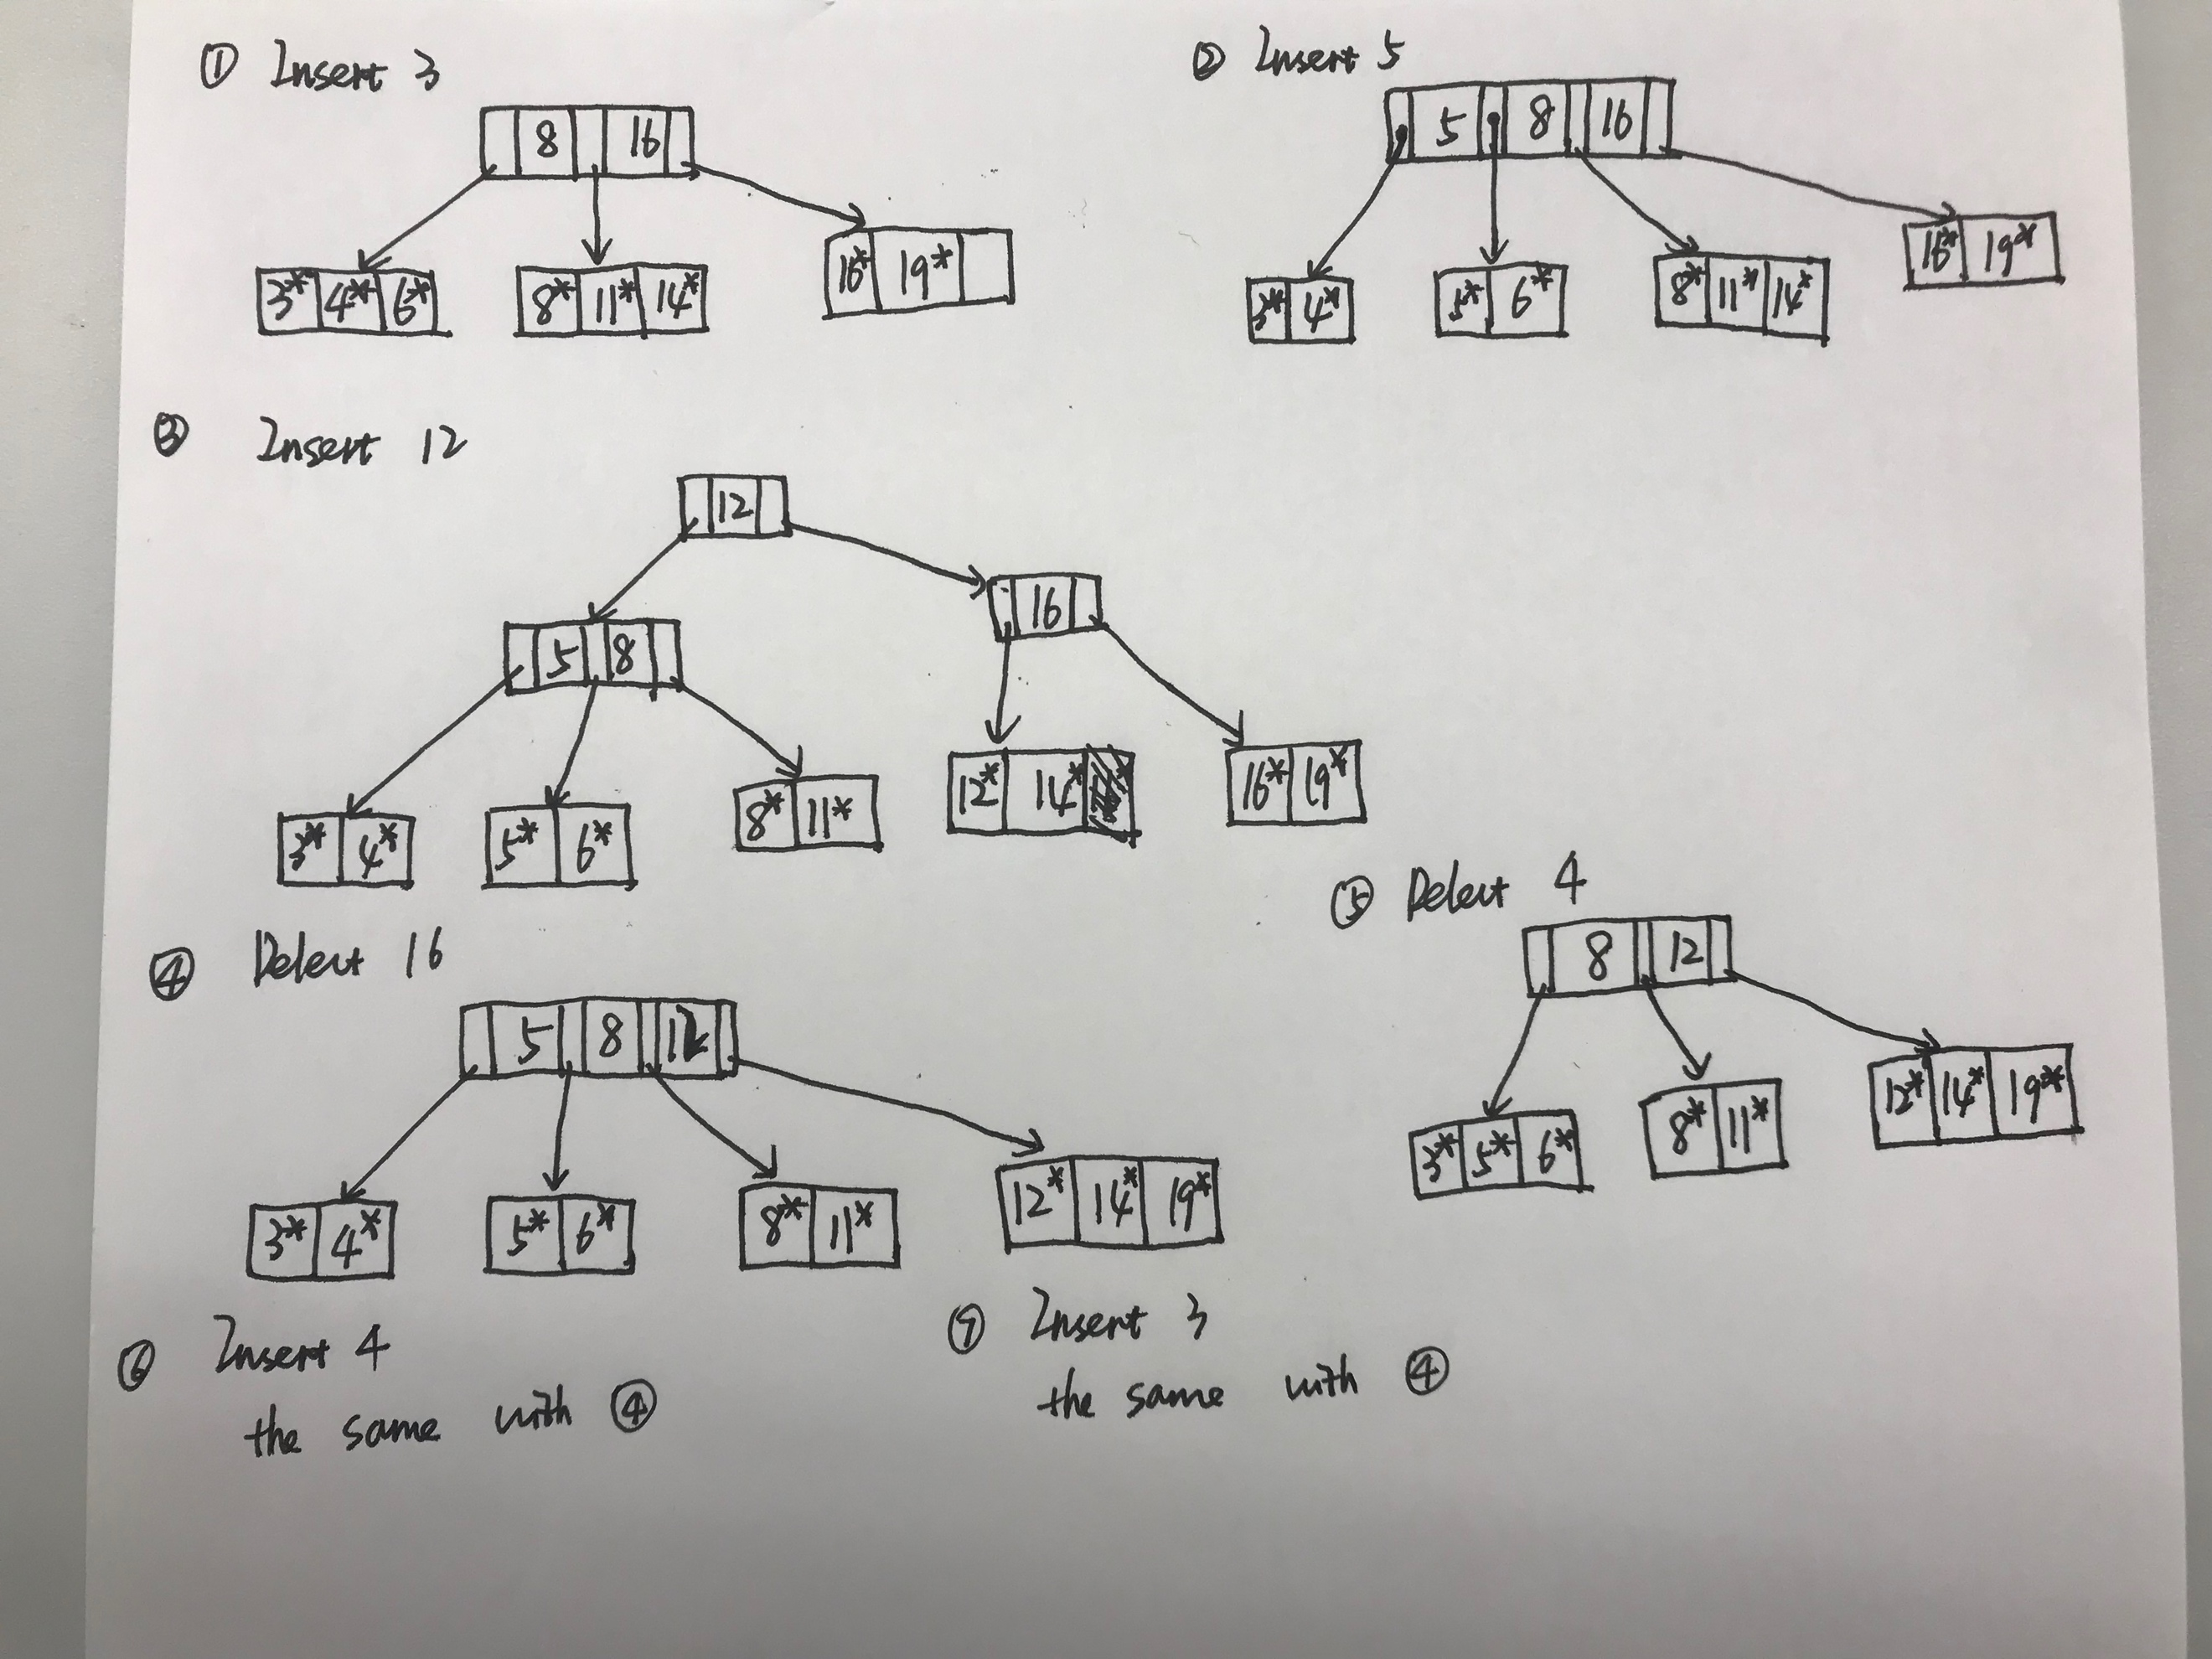 ① Insert 3
8 16
3* 4* 6* 8* 11* 14* 16* 19*
② Insert 5
5 8 16
3* 4* 5* 6* 8* 11* 14* 16* 19*
③ Insert 12
12
16
5 8
3* 4* 5* 6* 8* 11* 12* 14* 16* 19*
④ Delect 16
5 8 12
3* 4* 5* 6* 8* 11* 12* 14* 19*
⑤ Delect 4
8 12
3* 5* 6* 8* 11* 12* 14* 19*
⑥ Insert 4
the same with ④
⑦ Insert 3
the same with ④